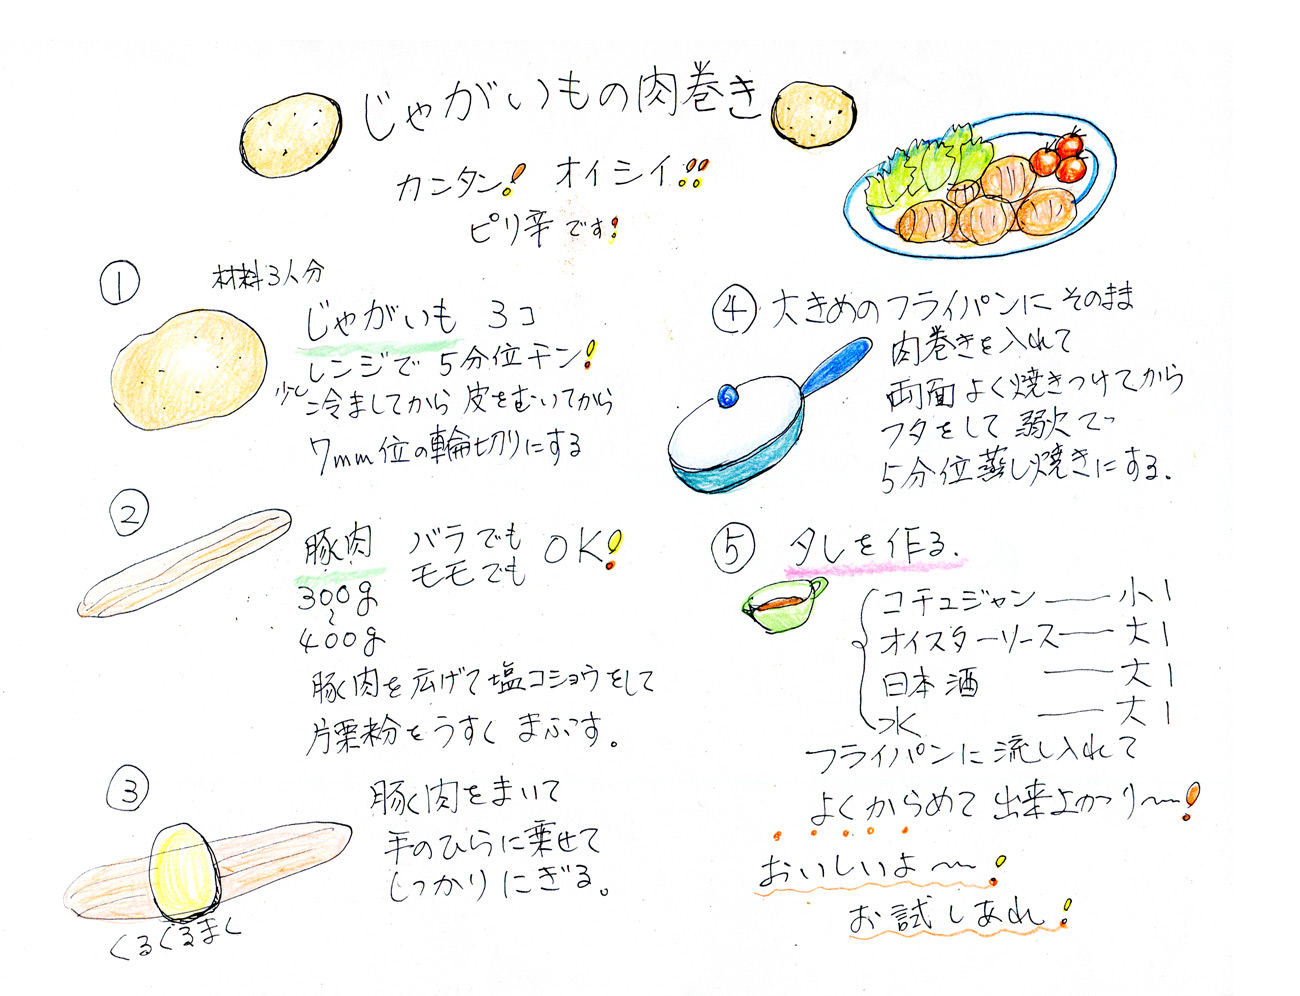 じゃがいもの肉巻き
カンタン! オイシイ!!
ピリ辛です!
① 材料3人分
じゃがいも 3コ
レンジで 5分位チン!
少し冷ましてから 皮をむいてから
7mm位の輪切りにする
②
豚肉 バラでも モモでも OK!
300g
〜
400g
豚肉を広げて塩コショウをして
片栗粉をうすく まぶす。
③
豚肉をまいて
手のひらに乗せて
しっかりにぎる。
くるくるまく
④ 大きめのフライパンに そのまま
肉巻きを入れて
両面よく焼きつけてから
フタをして 弱火で
5分位蒸し焼きにする.
⑤ タレを作る.
コチュジャン — 小1
オイスターソース — 大1
日本酒 — 大1
水 — 大1
フライパンに流し入れて
よくからめて 出来上がり〜!
おいしいよ〜!
お試しあれ!